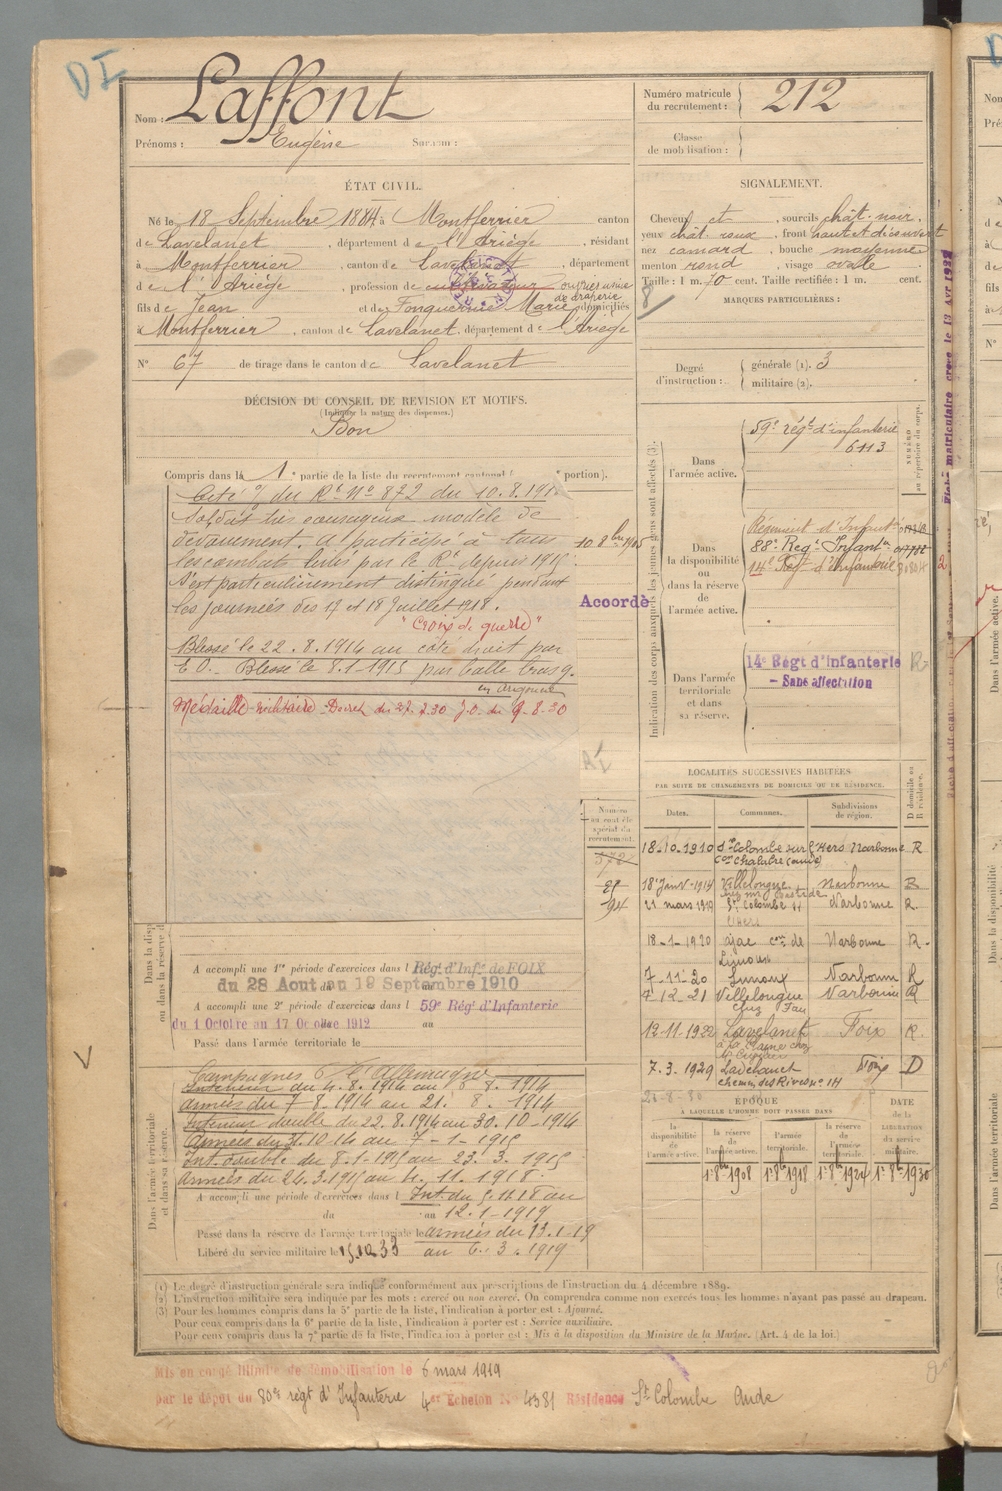 DI
Nom : Laffont
Prénoms : Eugène Surnom :
Numéro matricule du recrutement : 212
Classe de mobilisation :
ÉTAT CIVIL.
Né le 18 Septembre 1884 à Montferrier canton
de Lavelanet, département de l'Ariège, résidant
à Montferrier, canton de Lavelanet, département
de l'Ariège, profession de cultivateur usine de draperie
fils de Jean et de Marie, domiciliés
à Montferrier, canton de Lavelanet, département de l'Ariège
N° 67 de tirage dans le canton de Lavelanet
SIGNALEMENT.
Cheveux et, sourcils chât. noir
yeux chât roux, front haut et découvert
nez camard, bouche moyenne
menton rond, visage ovale
Taille : 1 m. 70 cent. Taille rectifiée : 1 m. cent.
MARQUES PARTICULIÈRES :
Degré d'instruction : générale (1). 3
militaire (2).
DÉCISION DU CONSEIL DE REVISION ET MOTIFS.
(Indiquer la nature des dispenses.)
Bon
Compris dans la 1 partie de la liste du recrutement cantonal ( portion).
Cité du Rt N° 872 du 10.8.191
Soldat très courageux modèle de
dévouement. A participé à tous
les combats livrés par le Rt depuis 1915
S'est particulièrement distingué pendant
les journées des 17 et 18 Juillet 1918.
"Croix de guerre"
Blessé le 22.8.1914 au côté droit par
E.O. Blessé le 8.1.1915 par balle bras g.
en Argonne
Médaille militaire Décret du 27.7.30 J.O. du 9-8-30
Accordé
Indication des corps auxquels les jeunes gens sont affectés (3).
Dans l'armée active.
59e régt d'infanterie
6113
NUMÉRO au répertoire du corps.
Dans la disponibilité ou dans la réserve de l'armée active.
Régiment d'Infant
88e Régt Infant
14e Régt d'Infanterie
Dans l'armée territoriale et dans sa réserve.
14e Régt d'Infanterie
- Sans affectation
LOCALITÉS SUCCESSIVES HABITÉES
PAR SUITE DE CHANGEMENTS DE DOMICILE OU DE RÉSIDENCE.
Dates. Communes. Subdivisions de région. D domicile ou R résidence.
18-10-1910 Ste Colombe sur l'Hers Narbonne R
con Chalabre (aude)
18 Janv-1914 Villelongue Narbonne R
21 mars 1919 Ste Colombe s/ l'Hers Narbonne R.
18-1-1920 ajac con de Limoux Narbonne R.
7-11-20 Limoux Narbonne R
4 12-21 Villelongue Narbonne R
12-11-1922 Lavelanet Foix R.
7.3.1929 Lavelanet Foix D
chemin des Rives n° 14
Numéro au contrôle spécial du recrutement.
572
27
94
Dans la disp ou dans la réserve d
A accompli une 1re période d'exercices dans l Régt d'Infie de FOIX
du 28 Aout au 19 Septembre 1910
A accompli une 2e période d'exercices dans l 59e Régt d'Infanterie
du 1 Octobre au 17 Octobre 1912 au
Passé dans l'armée territoriale le
Dans l'armée territoriale et dans sa réserve.
Campagnes C/ l'Allemagne
Intérieur du 4.8.1914 au 6 8.1914
Armées du 7-8.1914 au 21. 8. 1914
Intérieur double du 22.8.1914 au 30.10-1914
Armées du 31.10 14 au 7-1-1915
Int. double du 8.1-1915 au 23. 3. 1915
Armées du 24.3.1915 au 4. 11. 1918.
A accompli une période d'exercices dans l Int du 5.11.18 au
du au 12.1-1919
Passé dans la réserve de l'armée territoriale le armées du 13.1-19
Libéré du service militaire le 15.10.33 au 6. 3. 1919
ÉPOQUE
A LAQUELLE L'HOMME DOIT PASSER DANS
la disponibilité de l'armée active. la réserve de l'armée active. l'armée territoriale. la réserve de l'armée territoriale. DATE de la LIBÉRATION du service militaire.
1er 8bre 1908 1er 8bre 1918 1er 8bre 1924 1er 8bre 1930
(1) Le degré d'instruction générale sera indiqué conformément aux prescriptions de l'instruction du 4 décembre 1889.
(2) L'instruction militaire sera indiquée par les mots : exercé ou non exercé. On comprendra comme non exercés tous les hommes n'ayant pas passé au drapeau.
(3) Pour les hommes compris dans la 5e partie de la liste, l'indication à porter est : Ajourné.
Pour ceux compris dans la 6e partie de la liste, l'indication à porter est : Service auxiliaire.
Pour ceux compris dans la 7e partie de la liste, l'indication à porter est : Mis à la disposition du Ministre de la Marine. (Art. 4 de la loi.)
Mis en congé illimité de démobilisation le 6 mars 1919
par le dépôt du 80e régt d'Infanterie 4er Echelon N° 4381 Résidence Ste Colombe Aude